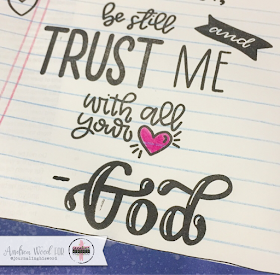 be still
and
TRUST ME
with all
your
-God